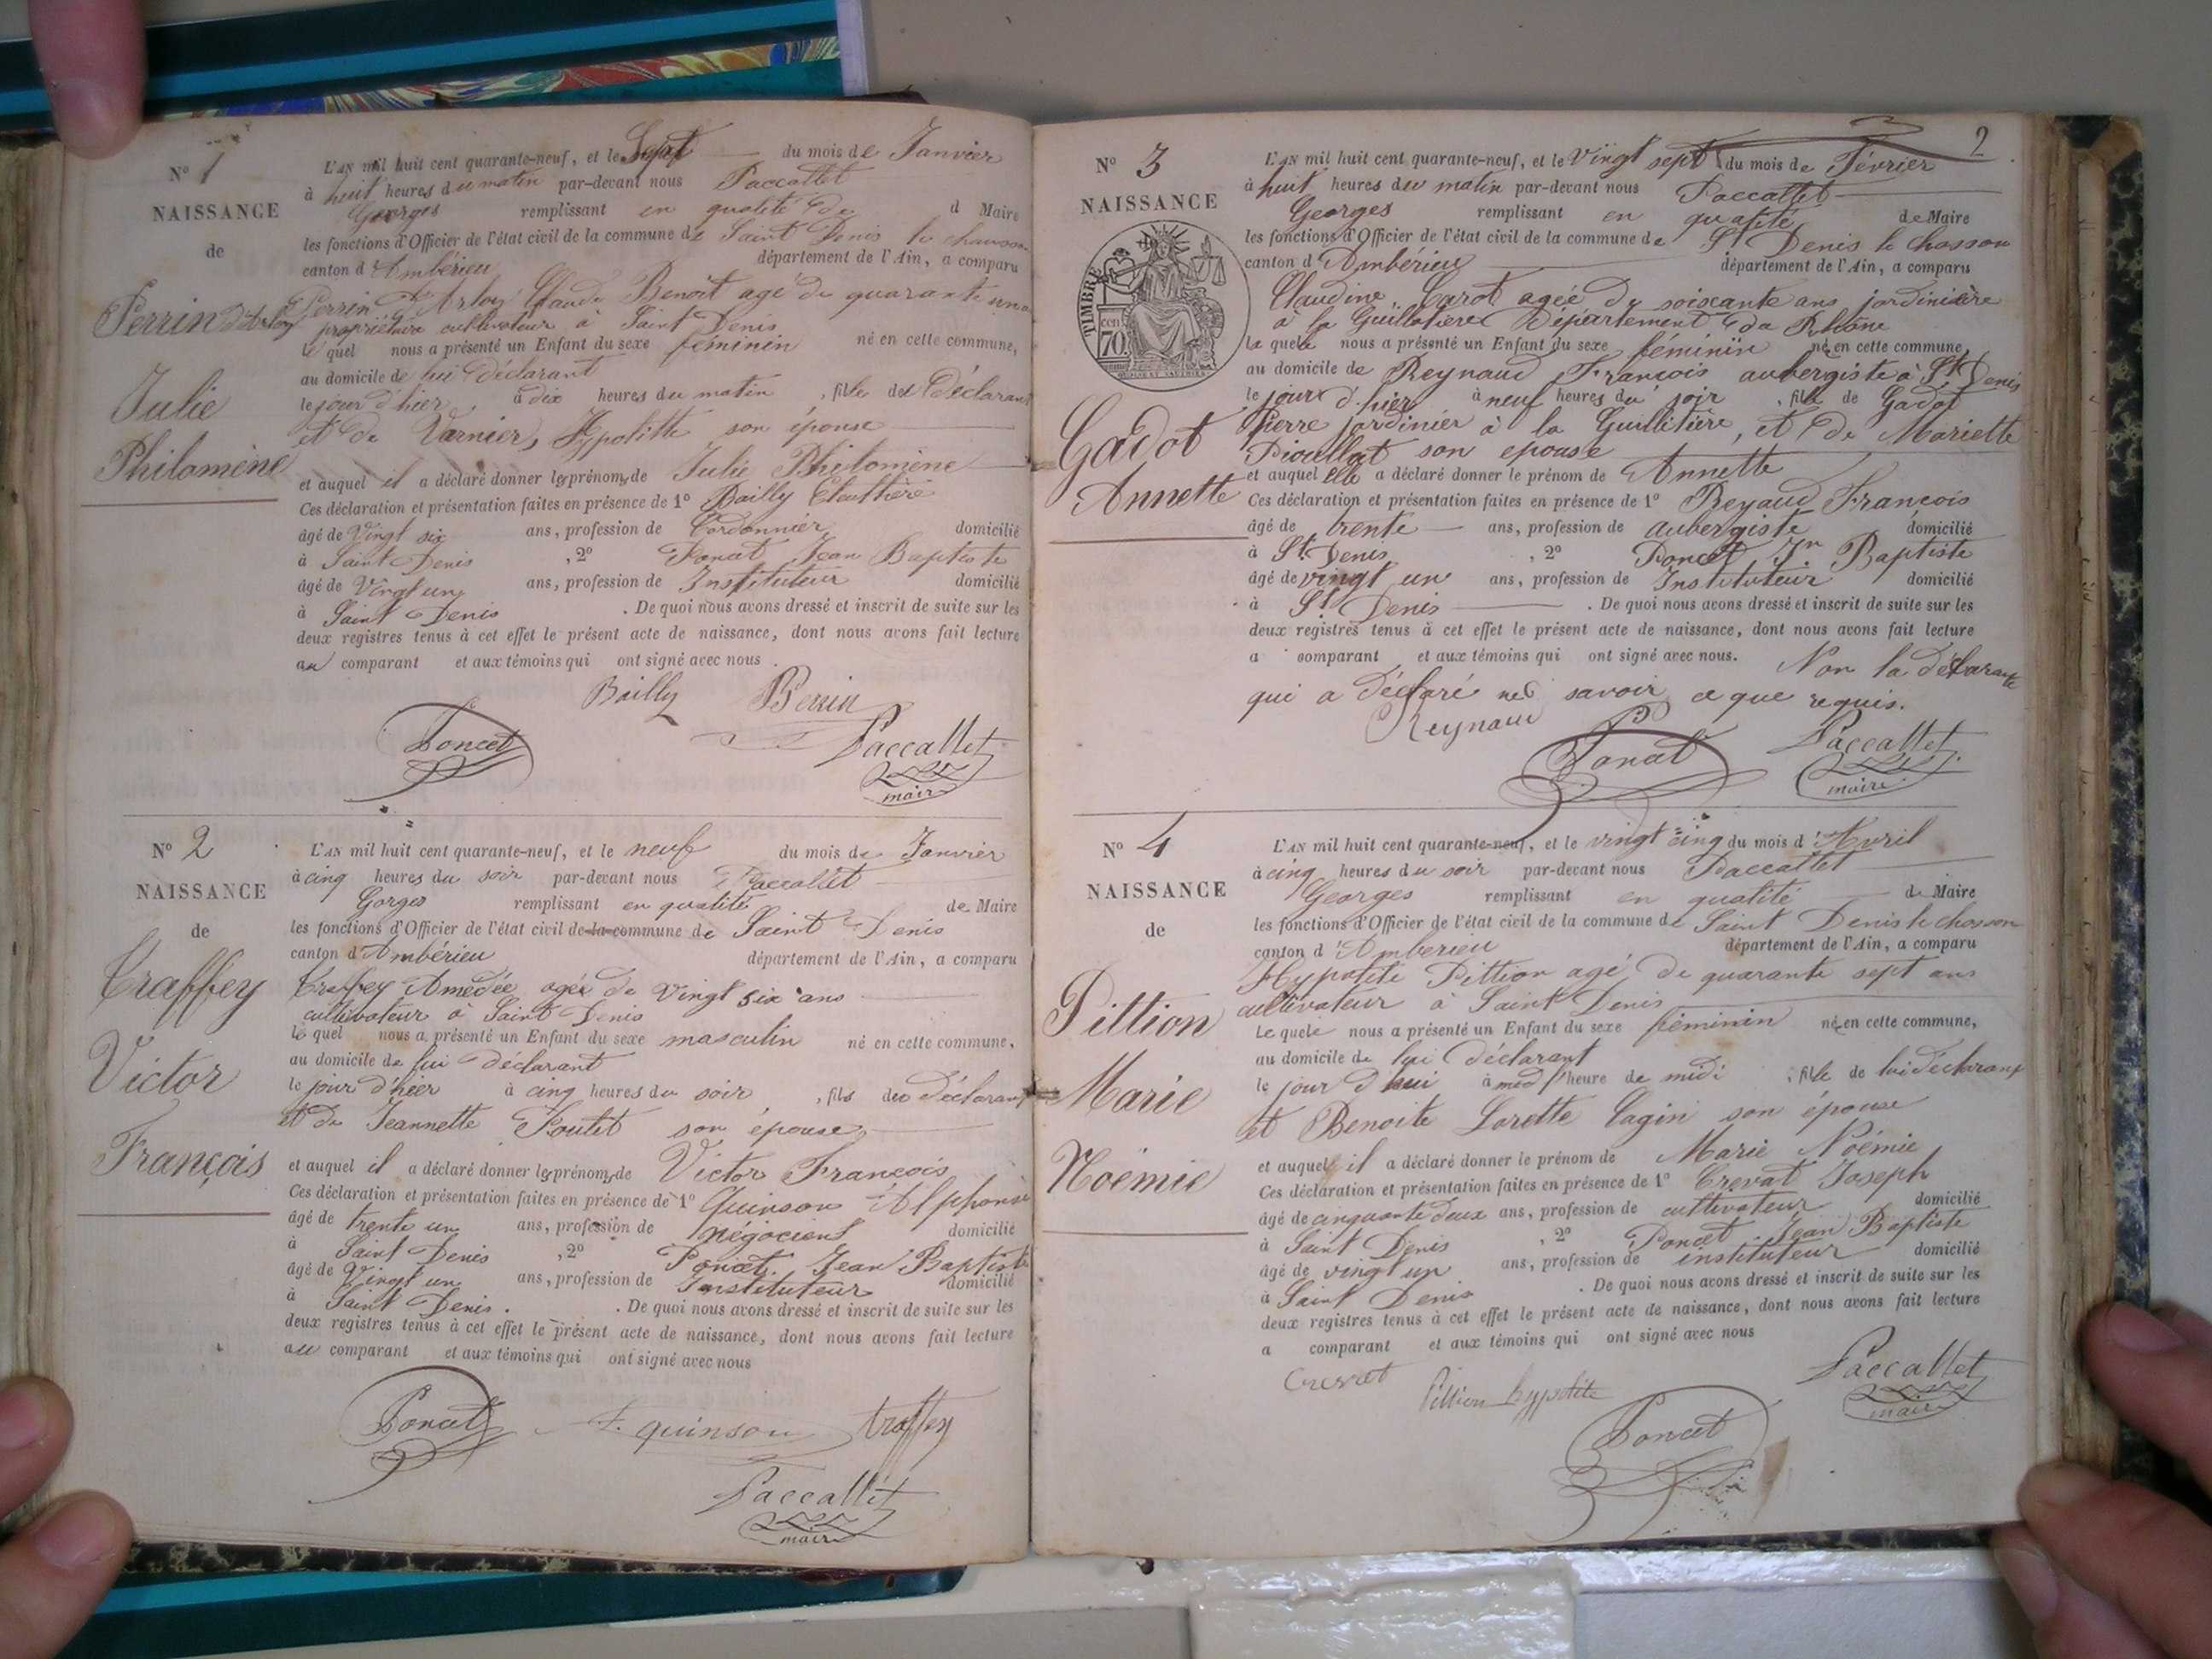 N° 1
NAISSANCE
de
Perrin d'Arloz
Julie
Philomène
L'AN mil huit cent quarante-neuf, et le Sept du mois de Janvier
à huit heures du matin par-devant nous Paccallet
Georges remplissant en qualité de d Maire
les fonctions d'Officier de l'état civil de la commune de Saint Denis le chausson
canton d'Ambérieu département de l'Ain, a comparu
Perrin d'Arloz Claude Benoit agé de quarante un
propriétaire cultivateur à Saint Denis
le quel nous a présenté un Enfant du sexe féminin né en cette commune,
au domicile de lui déclarant
le jour d'hier à dix heures du matin, fille des Déclarant
et de Varnier, Hypolitte son épouse
et auquel il a déclaré donner les prénoms de Julie Philomène
Ces déclaration et présentation faites en présence de 1° Bailly Eleuthère
âgé de Vingt six ans, profession de Cordonnier domicilié
à Saint Denis, 2° Poncet Jean Baptiste
âgé de Vingt un ans, profession de Instituteur domicilié
à Saint Denis. De quoi nous avons dressé et inscrit de suite sur les
deux registres tenus à cet effet le présent acte de naissance, dont nous avons fait lecture
au comparant et aux témoins qui ont signé avec nous.
Bailly Perrin
Poncet Paccallet
maire
N° 2
NAISSANCE
de
Traffey
Victor
François
L'AN mil huit cent quarante-neuf, et le neuf du mois de Janvier
à cinq heures du soir par-devant nous Paccallet
Gorges remplissant en qualité de Maire
les fonctions d'Officier de l'état civil de la commune de Saint Denis
canton d'Ambérieu département de l'Ain, a comparu
Traffey Amédée agée de vingt six ans
cultivateur à Saint Denis
le quel nous a présenté un Enfant du sexe masculin né en cette commune,
au domicile de lui déclarant
le jour d'hier à cinq heures du soir, fils du déclarant
et de Jeannette Poutet son épouse
et auquel il a déclaré donner les prénoms de Victor François
Ces déclaration et présentation faites en présence de 1° Quinson Alphonse
âgé de trente un ans, profession de négociant domicilié
à Saint Denis, 2° Poncet Jean Baptiste
âgé de Vingt un ans, profession de Instituteur domicilié
à Saint Denis. De quoi nous avons dressé et inscrit de suite sur les
deux registres tenus à cet effet le présent acte de naissance, dont nous avons fait lecture
au comparant et aux témoins qui ont signé avec nous
Poncet quinson traffey
Paccallet
maire
2
N° 3
NAISSANCE
TIMBRE
cen
70.
Gadot
Annette
L'AN mil huit cent quarante-neuf, et le Vingt sept du mois de Février
à huit heures du matin par-devant nous Paccallet
Georges remplissant en qualité de Maire
les fonctions d'Officier de l'état civil de la commune de St Denis le Chosson
canton d'Ambérieu département de l'Ain, a comparu
Claudine Carot agée de soixante ans jardinière
à la Guillotière Département du Rhône
la quele nous a présenté un Enfant du sexe féminin née en cette commune,
au domicile de Reynaud François aubergiste à St Denis
le jour d'hier à neuf heures du soir, fille de Gadot
Pierre jardinier à la Guillitière, et de Mariette
Pioullat son epouse
et auquel elle a déclaré donner le prénom de Annette
Ces déclaration et présentation faites en présence de 1° Reyaud François
âgé de trente ans, profession de aubergiste domicilié
à St Denis, 2° Poncet Jn Baptiste
âgé de vingt un ans, profession de Instituteur domicilié
à St Denis. De quoi nous avons dressé et inscrit de suite sur les
deux registres tenus à cet effet le présent acte de naissance, dont nous avons fait lecture
a comparant et aux témoins qui ont signé avec nous. Non la déclarante
qui a déclaré ne savoir ce que requis.
Reynaud
Poncet Paccallet
maire
N° 4
NAISSANCE
de
Pittion
Marie
Noémie
L'AN mil huit cent quarante-neuf, et le vingt cinq du mois d'Avril
à cinq heures du soir par-devant nous Paccallet
Georges remplissant en qualité de Maire
les fonctions d'Officier de l'état civil de la commune de Saint Denis le chosson
canton d'Amberieu département de l'Ain, a comparu
Hypolite Pittion agé de quarante sept ans
cultivateur à Saint Denis
Le quele nous a présenté un Enfant du sexe féminin née en cette commune,
au domicile de lui déclarant
le jour d'hui à heure de midi, fille de lui déclarant
et Benoite Lorette Cagin son épouse
et auquel il a déclaré donner le prénom de Marie Noémie
Ces déclaration et présentation faites en présence de 1° Crevat Joseph
âgé de cinquante deux ans, profession de cultivateur domicilié
à Saint Denis, 2° Poncet Jean Baptiste
âgé de vingt un ans, profession de instituteur domicilié
à Saint Denis. De quoi nous avons dressé et inscrit de suite sur les
deux registres tenus à cet effet le présent acte de naissance, dont nous avons fait lecture
a comparant et aux témoins qui ont signé avec nous
Crevat Pittion hypolite Paccallet
maire
Poncet